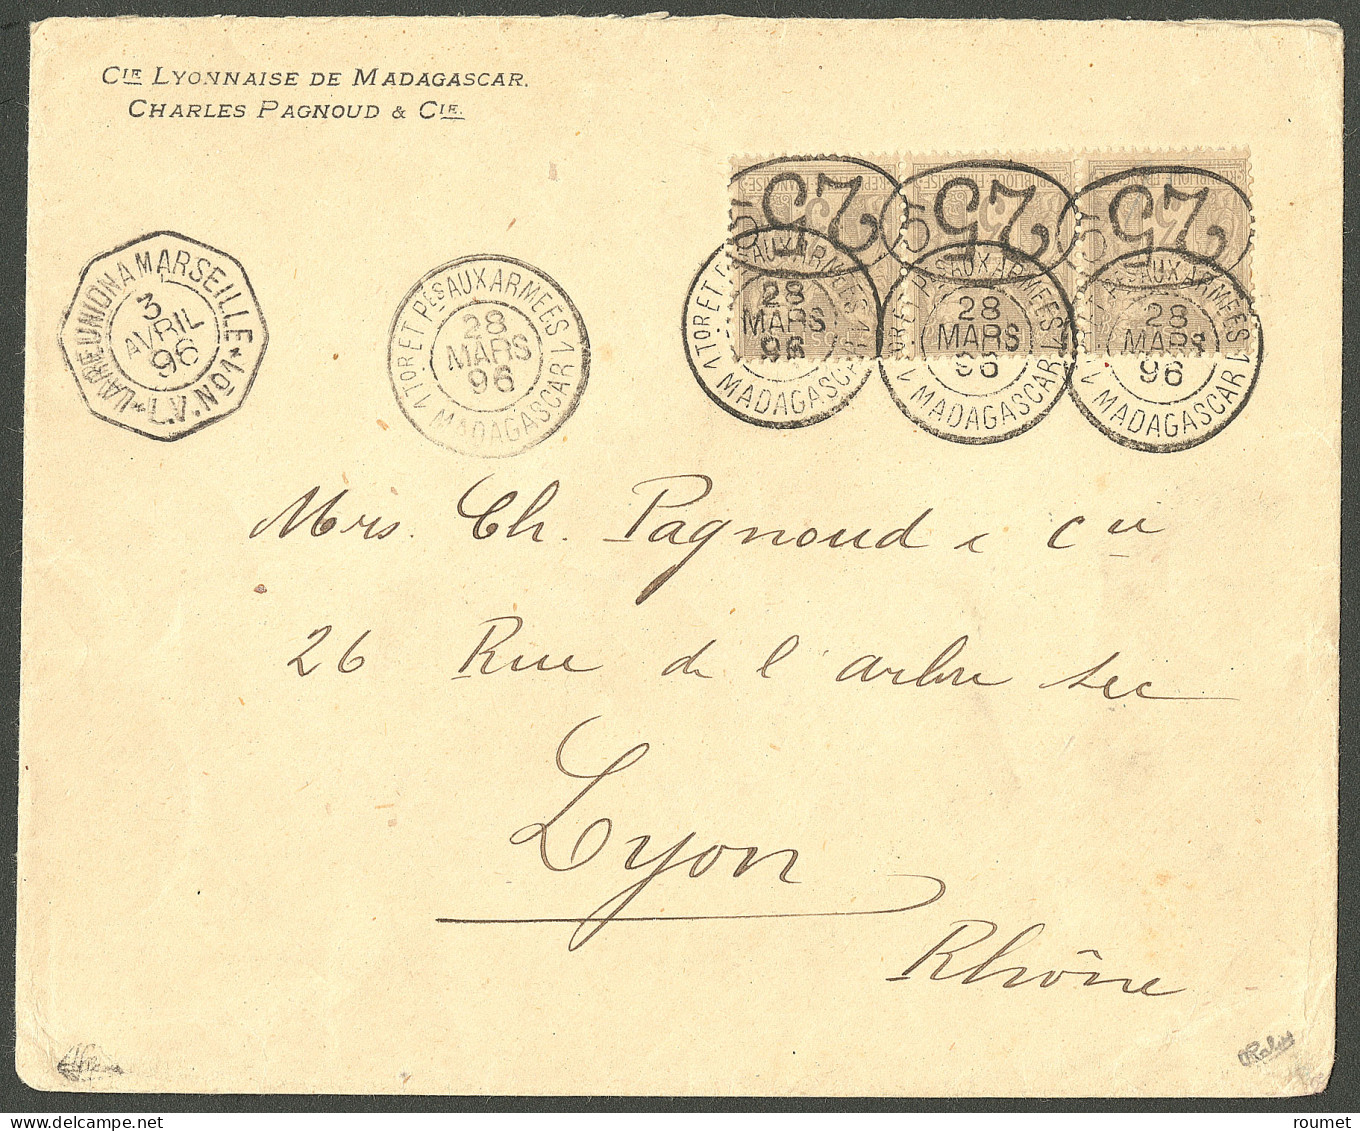 CIE LYONNAISE DE MADAGASCAR.
CHARLES PAGNOUD & CIE.
25 25 25
LA REUNION A MARSEILLE * L.V. N° 1 *
3
AVRIL
96
TOR ET PES AUX ARMEES 1
28
MARS
96
1 MADAGASCAR 1
TOR ET PES AUX ARMEES 1
28
MARS
96
1 MADAGASCAR
TOR ET PES AUX ARMEES 1
28
MARS
96
1 MADAGASCAR
PES AUX ARMEES
28
MARS
96
1 MADAGASCAR 1
Mrs. Ch. Pagnoud & Cie
26 Rue de l'arbre sec
Lyon
Rhône
roumet